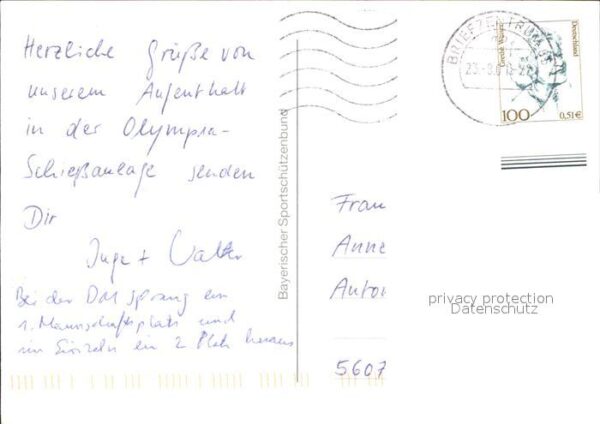 Herzliche Grüße von
unserem Aufenthalt
in der Olympia-
Schießanlage senden
Dir
Inge + Walter
Bei der DM sprang ein
1. Mannschaftsplatz und
im Einzeln ein 2 Platz heraus
Bayerischer Sportschützenbund
BRIEFZENTRUM
Grethe Weiser
Deutschland
100
0,51€
Frau
Anne
Anton
5607
privacy protection
Datenschutz